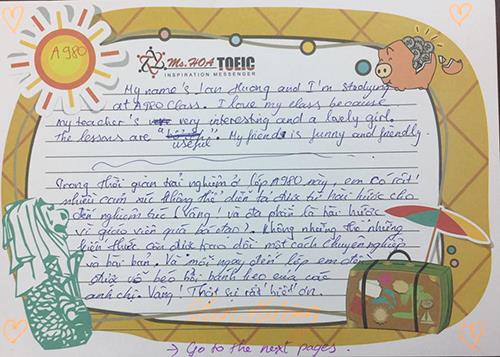 A980
Ms. HOA TOEIC
INSPIRATION MESSENGER
My name's Lan Huong and I'm studying
at A980 class. I love my class because
my teacher's very interesting and a lovely girl.
The lessons are " useful ". My friend is funny and friendly.
Trong thời gian trải nghiệm ở lớp A980 này, em có rất
nhiều cảm xúc không thể diễn tả được từ hài hước cho
đến nghiêm túc (Vâng! và đa phần là hài hước
vì giáo viên quá bá đạo). Không những thế những
kiến thức còn được trao đổi một cách chuyên nghiệp
và bài bản. Và mỗi ngày đến lớp em đều
được vỗ béo bởi bánh kẹo của các
anh chị. Vâng! Thật sự rất biết ơn.
→ Go to the next pages